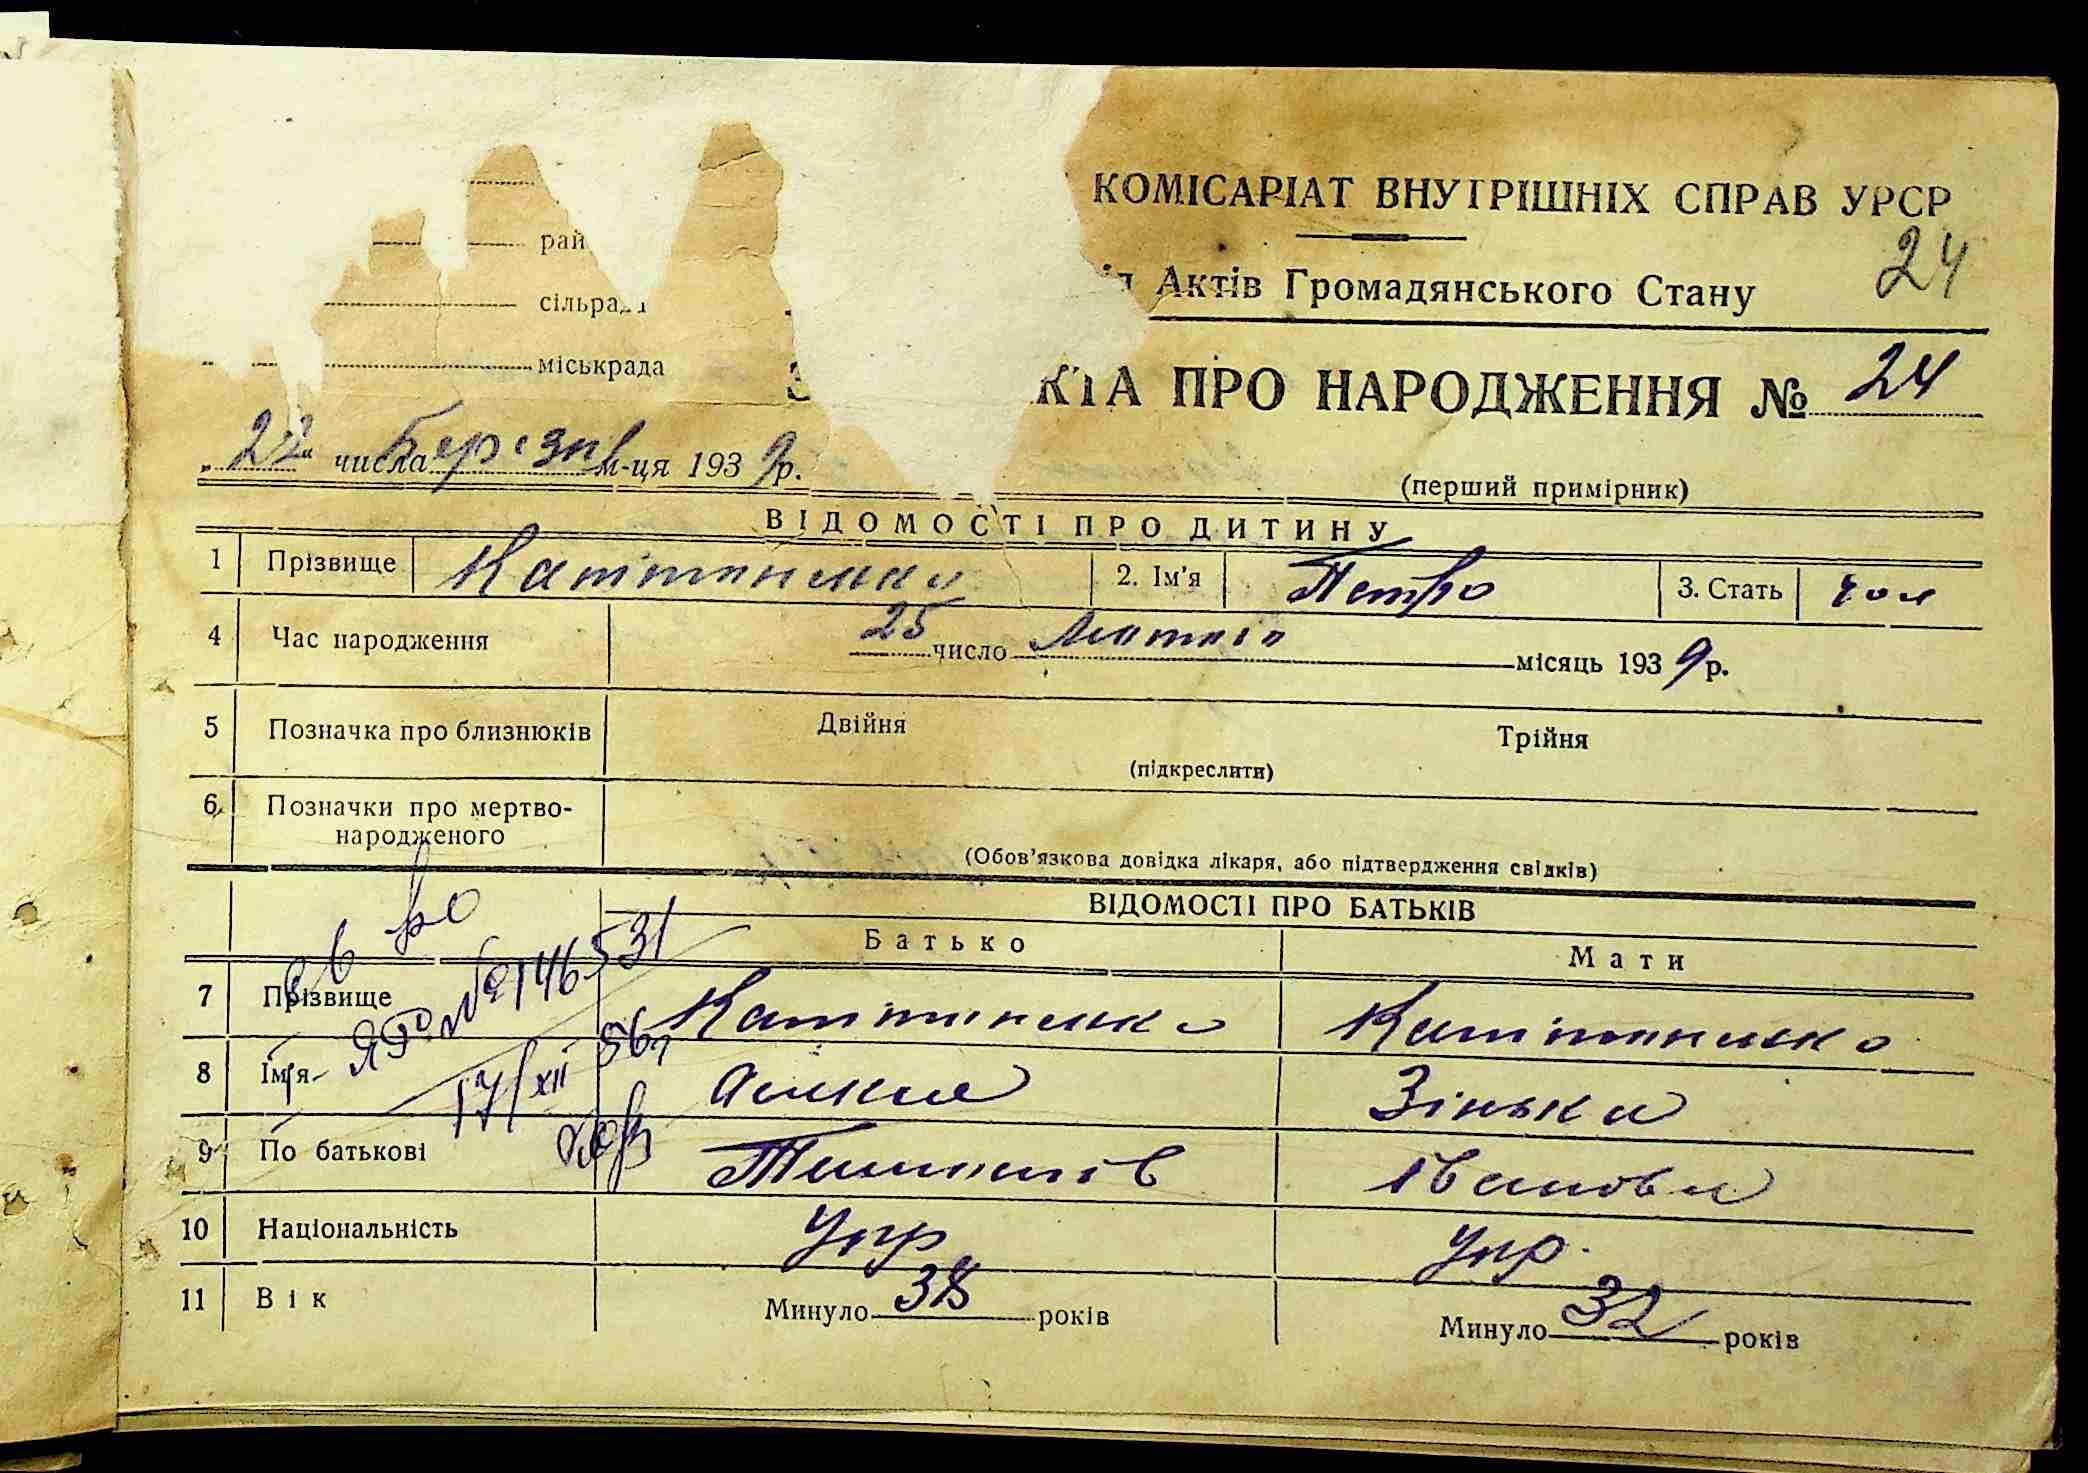 КОМІСАРІАТ ВНУТРІШНІХ СПРАВ УРСР
24
рай
Актів Громадянського Стану
сільрада
міськрада
КТА ПРО НАРОДЖЕННЯ № 24
„22“ числа Березня м-ця 1939р.
(перший примірник)
ВІДОМОСТІ ПРО ДИТИНУ
1 Прізвище 2. Ім'я Петро 3. Стать чол
4 Час народження 25 число Лютого місяць 1939р.
5 Позначка про близнюків Двійня Трійня
(підкреслити)
6 Позначки про мертво-
народженого
(Обов'язкова довідка лікаря, або підтвердження свідків)
ВІДОМОСТІ ПРО БАТЬКІВ
Батько Мати
7 Прізвище
№ 146531
8 Ім'я Зінька
17/XII 56
9 По батькові Івановна
10 Національність Укр Укр.
11 Вік Минуло 38 років Минуло 32 років